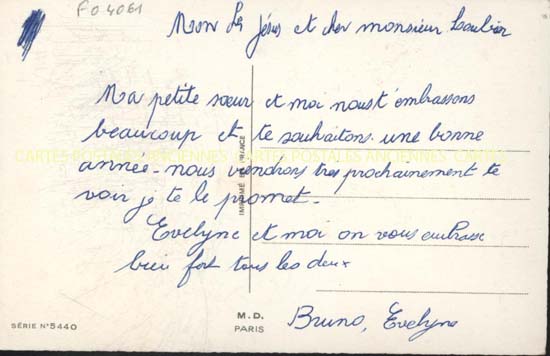 FO 4061
Mon   Jésus et cher monsieur
Ma petite sœur et moi nous t'embrassons
beaucoup et te souhaitons une bonne
CARTES POSTALES ANCIENNES CARTES POSTALES ANCIENNES CARTE
année - nous viendrons très prochainement te
voir je te le promet.
Evelyne et moi on vous embrasse
bien fort tous les deux
Bruno, Evelyne
IMPRIMÉ EN FRANCE
M.D.
PARIS
SÉRIE N°5440